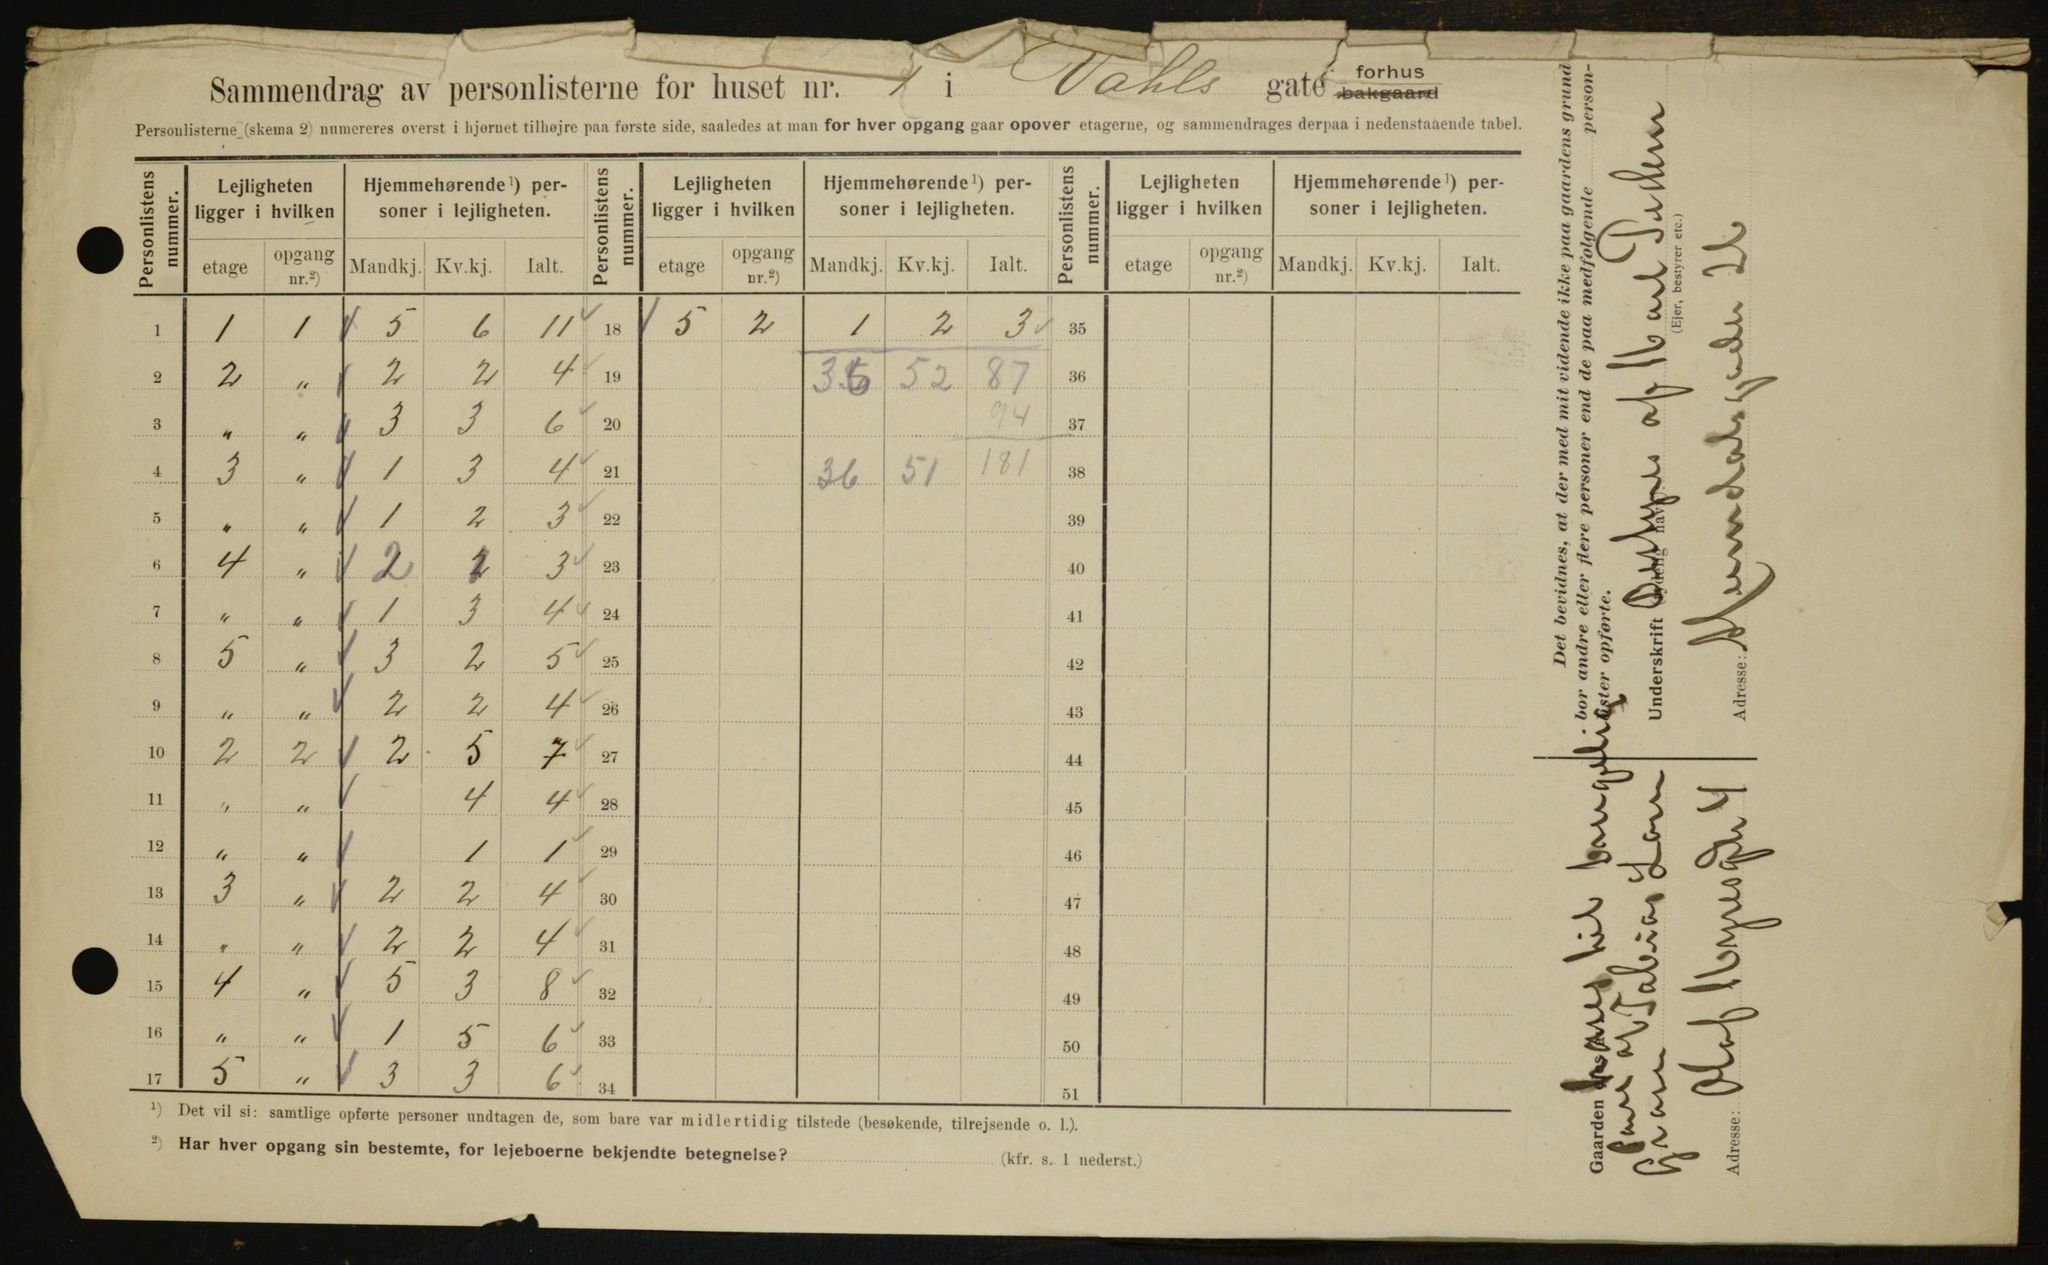 Sammendrag av personlisterne for huset nr. 1 i Vahls gate forhus bakgaard
Personlisterne (skema 2) numereres øverst i hjørnet tilhøjre paa første side, saaledes at man for hver opgang gaar opover etagerne, og sammendrages derpaa i nedenstaaende tabel.
Personlistens nummer. Lejligheten ligger i hvilken Hjemmehørende¹) personer i lejligheten. Personlistens nummer. Lejligheten ligger i hvilken Hjemmehørende¹) personer i lejligheten. Personlistens nummer. Lejligheten ligger i hvilken Hjemmehørende¹) personer i lejligheten.
etage opgang nr.²) Mandkj. Kv.kj. Ialt. etage opgang nr.²) Mandkj. Kv.kj. Ialt. etage opgang nr.²) Mandkj. Kv.kj. Ialt.
1 1 1 5 6 11 18 5 2 1 2 3 35
2 2 " 2 2 4 19 52 87 36
3 " " 3 3 6 20 94 37
4 3 " 1 3 4 21 36 51 181 38
5 " " 1 2 3 22 39
6 4 " 2 1 3 23 40
7 " " 1 3 4 24 41
8 5 " 3 2 5 25 42
9 " " 2 2 4 26 43
10 2 2 2 5 7 27 44
11 " " 4 4 28 45
12 " " 1 1 29 46
13 3 " 2 2 4 30 47
14 " " 2 2 4 31 48
15 4 " 5 3 8 32 49
16 " " 1 5 6 33 50
17 5 " 3 3 6 34 51
¹) Det vil si: samtlige opførte personer undtagen de, som bare var midlertidig tilstede (besøkende, tilrejsende o. l.).
²) Har hver opgang sin bestemte, for lejeboerne bekjendte betegnelse? (kfr. s. 1 nederst.)
Det bevidnes, at der med mit vidende ikke paa gaardens grund
bor andre eller flere personer end de paa medfølgende person-
lister opførte.
Underskrift (tydelig navn):
(Ejer, bestyrer etc.)
Adresse:
Gaarden
Adresse: Olaf Ryesgt 4